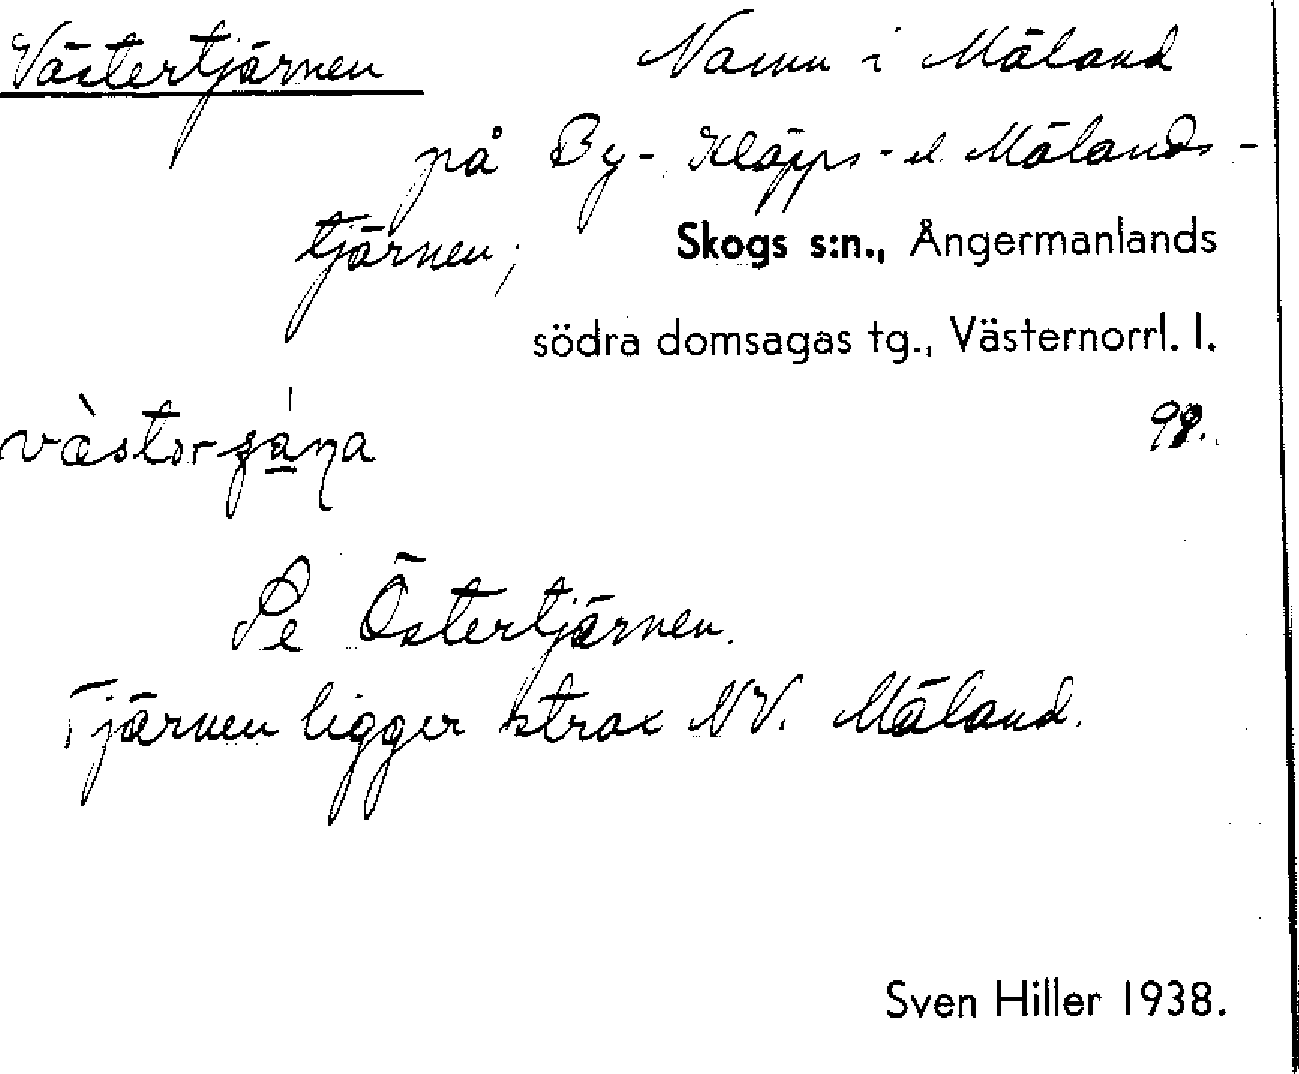 Västertjärnen Namn i Mäland
på By- Kläpps- el. Mälands-
tjärnen; Skogs s:n., Ångermanlands
södra domsagas tg., Västernorrl. l.
98.
Se Östertjärnen.
Tjärnen ligger strax NV. Mäland.
Sven Hiller 1938.